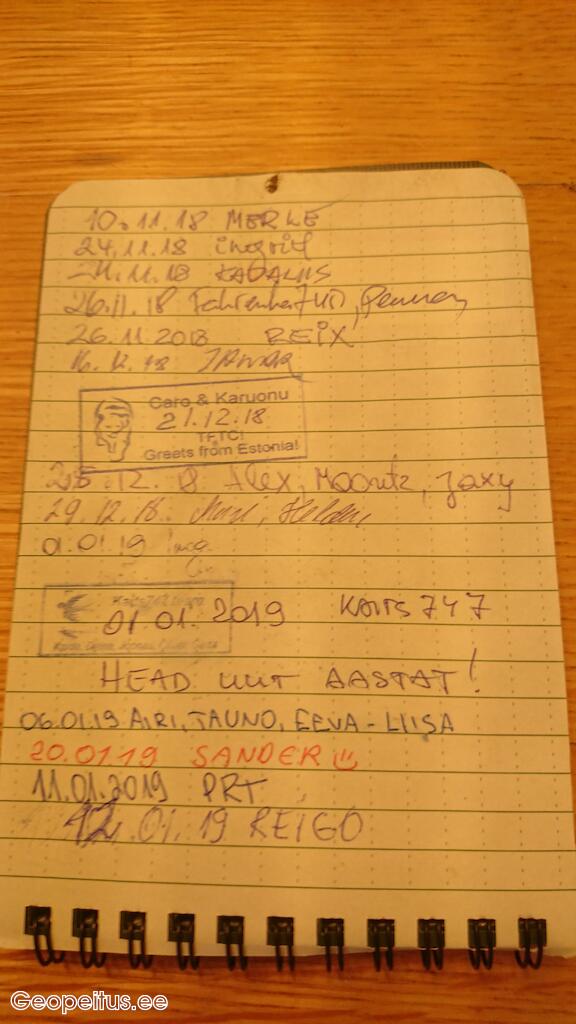 10.11.18 MERLE
24.11.18 ingrid
11.18
26.11.18
26.11.2018 REIX
16.12.18
Caro & Karuonu
21.12.18
TFTC!
Greets from Estonia!
12.18 Alex, Jaxy
29.12.18
01.01.19
01 01. 2019 KAITS747
HEAD UUT AASTAT!
06.01.19 AIRI, TAUNO, EEVA-LIISA
20.01.19 SANDER
11.01.2019 PRT
12.01.19 REIGO
Geopeitus.ee